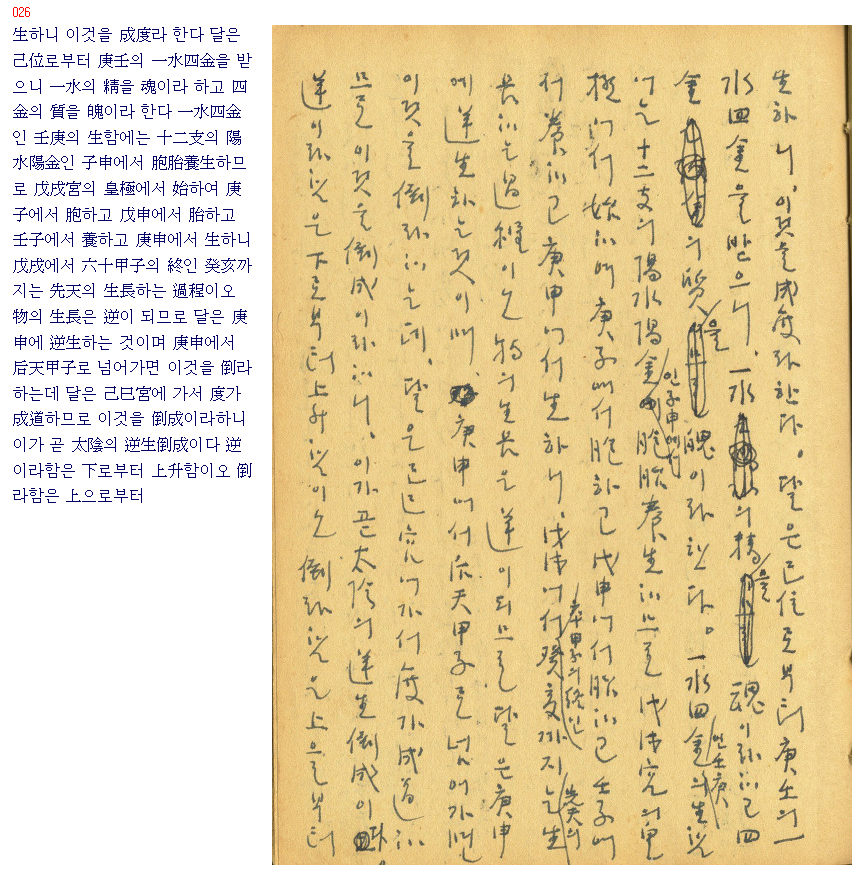 026
生하니 이것을 成度라 한다 달은
己位로부터 庚壬의 一水四金을 받
으니 一水의 精을 魂이라 하고 四
金의 質을 魄이라 한다 一水四金
인 壬庚의 生함에는 十二支의 陽
水陽金인 子申에서 胞胎養生하므
로 戊戌宮의 皇極에서 始하여 庚
子에서 胞하고 戊申에서 胎하고
壬子에서 養하고 庚申에서 生하니
戊戌에서 六十甲子의 終인 癸亥까
지는 先天의 生長하는 過程이오
物의 生長은 逆이 되므로 달은 庚
申에 逆生하는 것이며 庚申에서
后天甲子로 넘어가면 이것을 倒라
하는데 달은 己巳宮에 가서 度가
成道하므로 이것을 倒成이라하니
이가 곧 太陰의 逆生倒成이다 逆
이라함은 下로부터 上升함이오 倒
라함은 上으로부터
生하니, 이것을 成度라 한다. 달은 己位로부터 庚壬의 一
水四金을 받으니, 一水의 精을 魂이라하고 四
金의 質을 魄이라 한다。 一水四金인 壬庚의 生함
에는 十二支의 陽水陽金인 子申에서 胞胎養生하므로 戊戌宮의 皇
極에서 始하여 庚子에서 胞하고 戊申에서 胎하고 壬子에
서 養하고 庚申에서 生하니, 戊戌에서 六十甲子의 終인 癸亥까지는 先天의 生
長하는 過程이오 物의 生長은 逆이 되므로 달은 庚申
에 逆生하는 것이며 庚申에서 后天甲子로 넘어가면
이것을 倒라하는데, 달은 己巳宮에 가서 度가 成道하
므로 이것을 倒成이라하니, 이가 곧 太陰의 逆生倒成이다
逆이라함은 下로부터 上升함이오 倒라함은 上으로부터